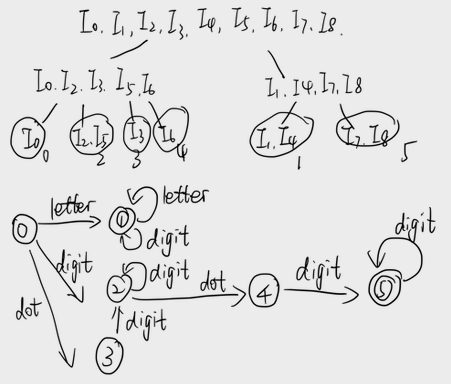 I0. I1, I2, I3, I4, I5, I6, I7. I8.
I0. I2. I3. I5. I6 I1. I4, I7, I8
I0 0 I2. I5 2 I3 3 I6 4 I1. I4 1 I7. I8 5
0 letter 1 letter
digit
digit
digit 2 digit dot 4 digit 5
dot digit
3